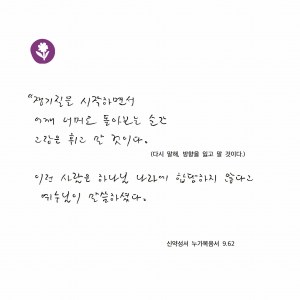 "쟁기질을 시작하면서
어깨 너머로 돌아보는 순간
고랑은 휘고 말 것이다.
(다시 말해, 방향을 잃고 말 것이다.)
이런 사람은 하나님 나라에 합당하지 않다고
예수님이 말씀하셨다.
신약성서 누가복음서 9.62